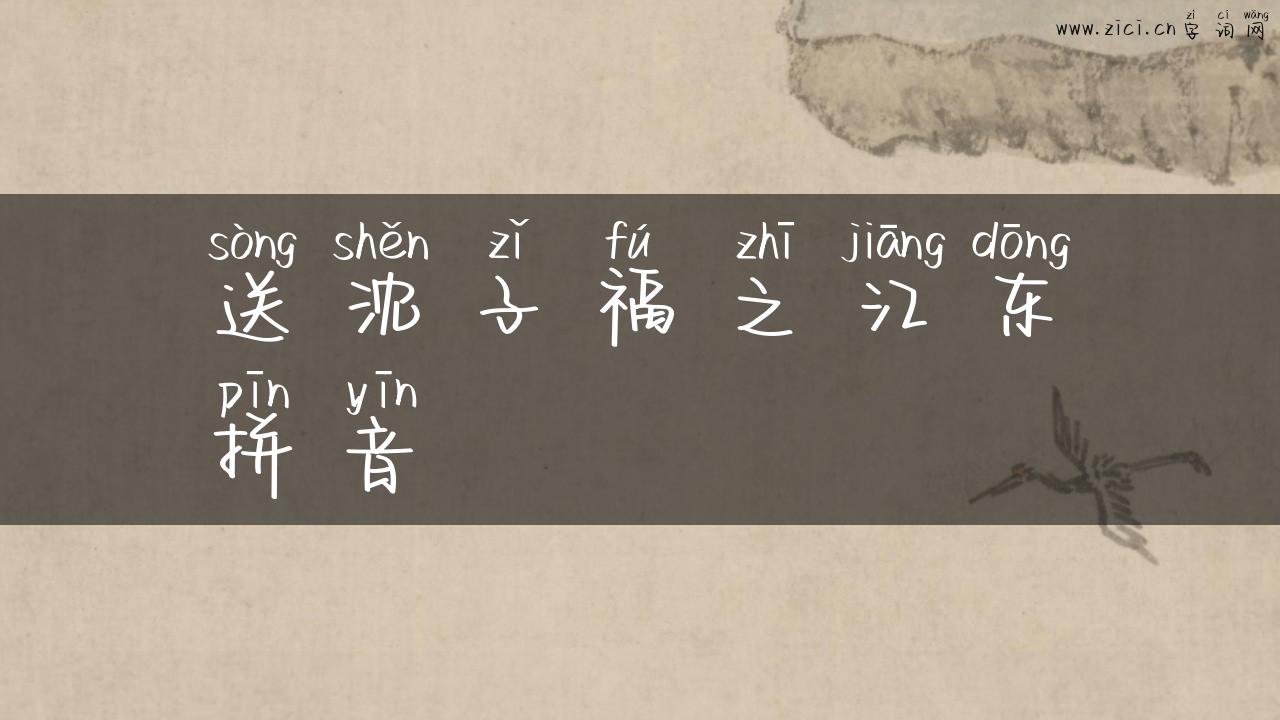 zì cí wǎng
www.zici.cn 字词网
sòng shěn zǐ fú zhī jiāng dōng
送沈子福之江东
pīn yīn
拼音